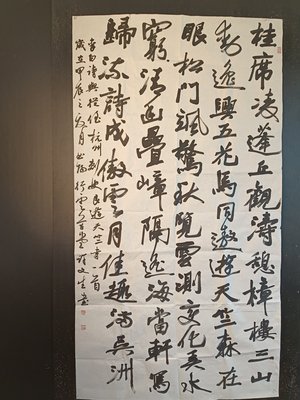 挂席凌蓬丘觀濤憩樟樓三山
動逸興五花馬同遨遊天竺森在
眼松門颯驚秋覽雲測變化弄水
窮清幽疊嶂隔遙海當軒寫
歸流詩成傲雲月佳趣滿吳洲
李白詩與從侄杭州刺史良遊天竺寺一首
歲在甲辰之月於行雲草堂書